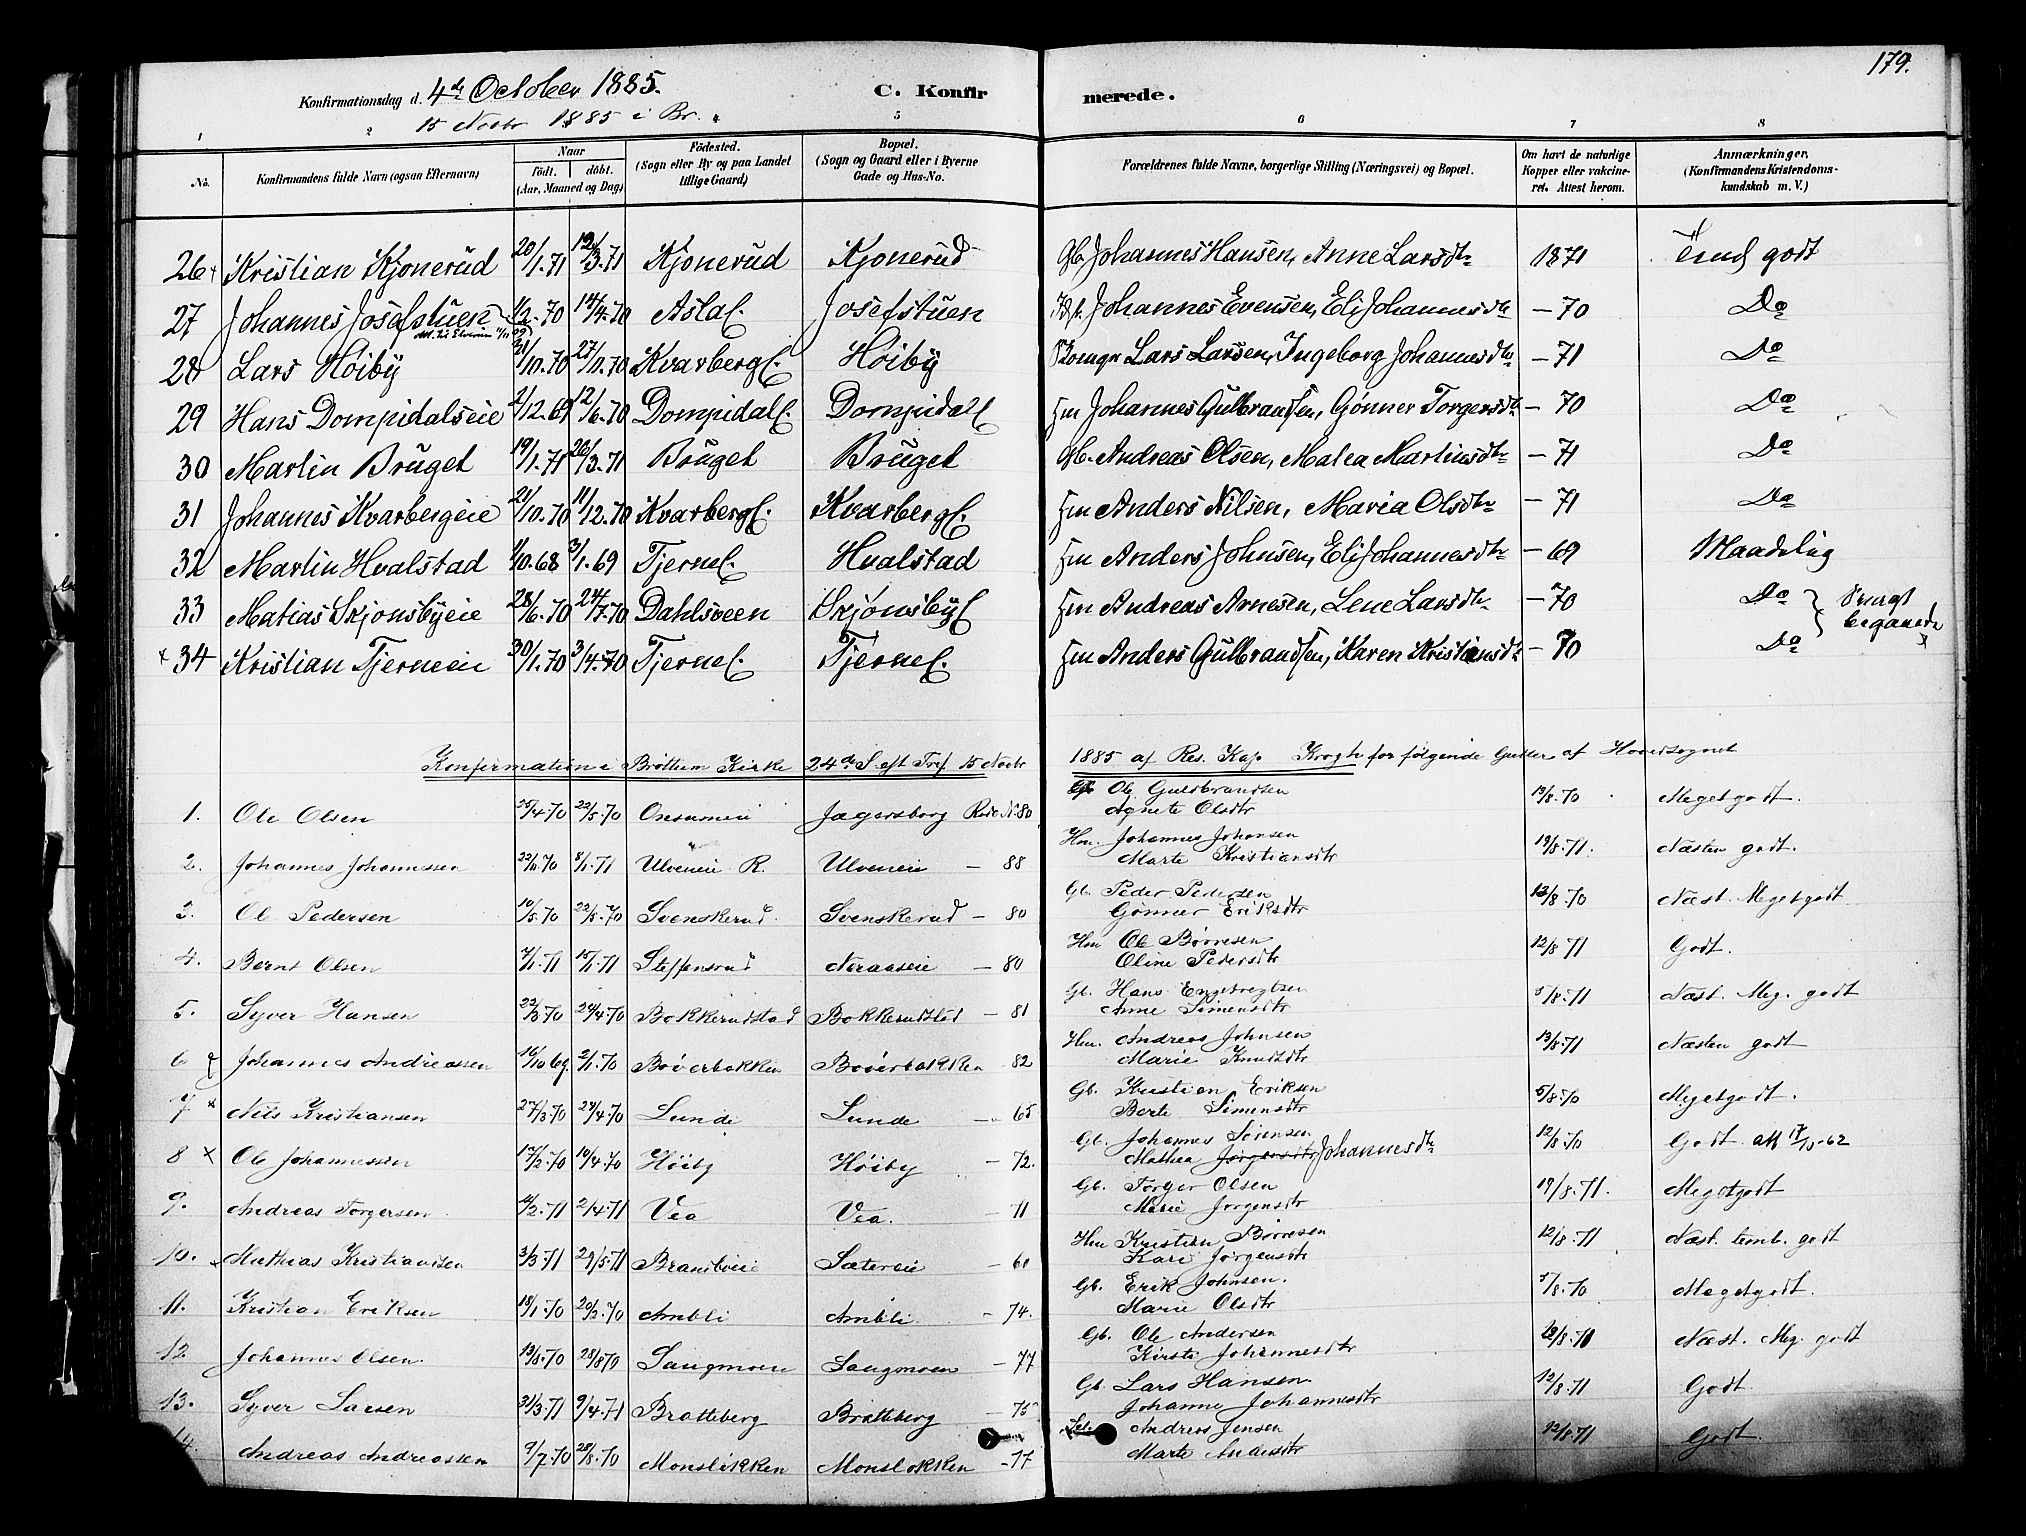 179.
Konfirmationsdag d. 4de October 1885. C. Konfir merede.
15 Novbr 1885 i Br.
1 2 5 6 7 8
No. Konfirmandens fulde Navn (ogsaa Efternavn) Naar født. døbt. (Aar, Maaned og Dag) Födested. (Sogn eller By og paa Landet tillige Gaard) Bopæl. (Sogn og Gaard eller i Byerne Gade og Hus-No. Forældrenes fulde Navne, borgerlige Stilling (Næringsvei) og Bopæl. Om havt de naturlige Kopper eller vakcineret. Attest herom. Anmærkninger, (Konfirmandens Kristendomskundskab m. V.)
26 Kristian Kjonerud 20/1.71 12/3.71 Kjonerud Kjonerud Gb. Johannes Hansen, Anne Larsdtr 1871 godt
27 Johannes Josefstuen 1/2.70 14/4.70 Josefstuen Johannes Evensen, Eli Johannesdtr — 70 Do
28 Lars Höiby 31/10.70 27/11.70 Kvarbergl. Höiby Lars Larsen, Ingeborg Johannesdtr — 71 Do
29 Hans Dompidalseie 2/12.69 12/6.70 Dompidall. Dompidall Hm Johannes Gulbrandsen, Gönner Torgersdtr — 70 Do
30 Martin Bruget 19/1.71 26/3.71 Bruget Bruget Gb. Andreas Olsen, Malea Martinsdtr — 71 Do
31 Johannes Kvarbergeie 21/10.70 11/12.70 Kvarbergl. Kvarbergl. Hm Anders Nilsen, Maria Olsdtr — 71 Do
32 Martin Hvalstad 1/10.68 3/1.69 Tjernel. Hvalstad Hm Anders Johnsen, Eli Johannesdtr — 69 Maadelig
33 Matias Skjonsbyeie 28/6.70 24/7.70 Dahlsveen Skjönsbyl Hm Andreas Arnesen, Lene Larsdtr — 70 Do
x 34 Kristian Tjerneeie 30/1.70 3/4.70 Tjernel. Tjernel. Hm Anders Gulbrandsen, Karen Kristiansdtr — 70 Do
Konfirmation i Bröttum Kirke 24de S. eft Tref. 15 Novbr 1885 af Res. Kap. Krogh for følgende Gutter af Hovedsognet
1. Ole Olsen 25/4.70 22/5.70 Onsumeie Jægersborg Rode No 80 Gb Ole Guldbrandsen 13/8.70 Meget godt.
Agnete Olsdtr
2. Johannes Johannessen 22/11.70 8/1.71 Ulveneie R. Ulveneie — 88 Hm. Johannes Johansen 19/8.71. Næsten godt.
Marte Kristiansdtr
3. Ole Pedersen 10/5.70 22/5.70 Svenskerud. Svenskerud — 80 Gb. Peder Pedersen 13/8.70 Næst. Meget godt
Gönner Eriksdtr
4. Bernt Olsen 4/1.71 15/1.71 Steffensrud Neraaseie — 80 Hm Ole Børresen 12/8.71 Godt.
Oline Pedersdtr
5. Syver Hansen 22/3.70 24/4.70 Bakkerudstad Bakkerudstad — 81 Gb. Hans Engebregtsen 5/8.71 Næst. Meg. godt
Anne Simensdtr
6 Johannes Andreassen 16/10 69. 2/1.70 Bøverbakken Bøverbakken — 82 Hm. Andreas Johnsen 13/8.71 Næsten godt
Marie Knudsdtr
7 x Nils Kristiansen 27/3.70 24/4.70 Lunde Lunde — 65 Gb. Kristian Eriksen 5/8.70 Meget godt.
Berte Simensdtr
8 x Ole Johannessen 17/2.70 10/4.70 Höiby Höiby — 72. Gb. Johannes Seiensen 12/8.70 Godt.
Mathea Johannesdtr
9. Andreas Torgersen 4/2.71 2/4.71 Vea Vea. — 11 Gb. Torger Olsen 19/8.71. Meget godt
Marie Jørgensdtr
10. Mathias Kristiansen 3/3.71 29/5.71 Sætereie — 60 Hm Kristian Børresen 12/8.71 Næst. temb. godt
Kari Jørgensdtr
11. Kristian Eriksen 18/1.70 20/2.70 Ambli Ambli — 74. Gb. Erik Johnsen. 5/8.70 Meget godt.
Marie Olsdtr
12. Johannes Olsen. 13/8.70 28/8.70 Saugmoen Saugmoen — 77 Gb. Ole Andersen Næst. Meg. godt
Kirsti Johannesdtr
13. Syver Larsen 31/3.71 9/4.71 Bratteberg Bratteberg — 75 Gb. Lars Hansen 12/8.71 Godt
Johanne Johannesdtr
14. Andreas Andreassen 9/7.70 28/8.70 Monsløkken Monsløkken — 77 Andreas Jensen 12/8.71 Godt.
Marte Andersdtr